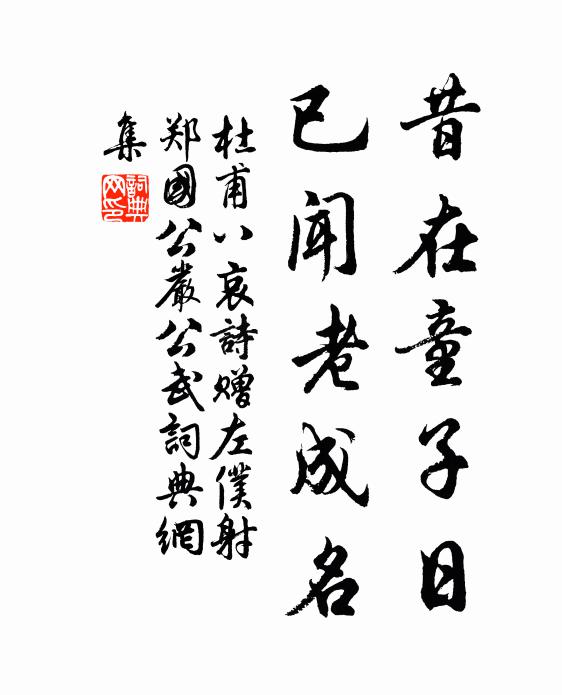 昔在童子日
已聞老成名
杜甫八哀詩赠左僕射
郑國公嚴公武詞典網
集
詞典
网印